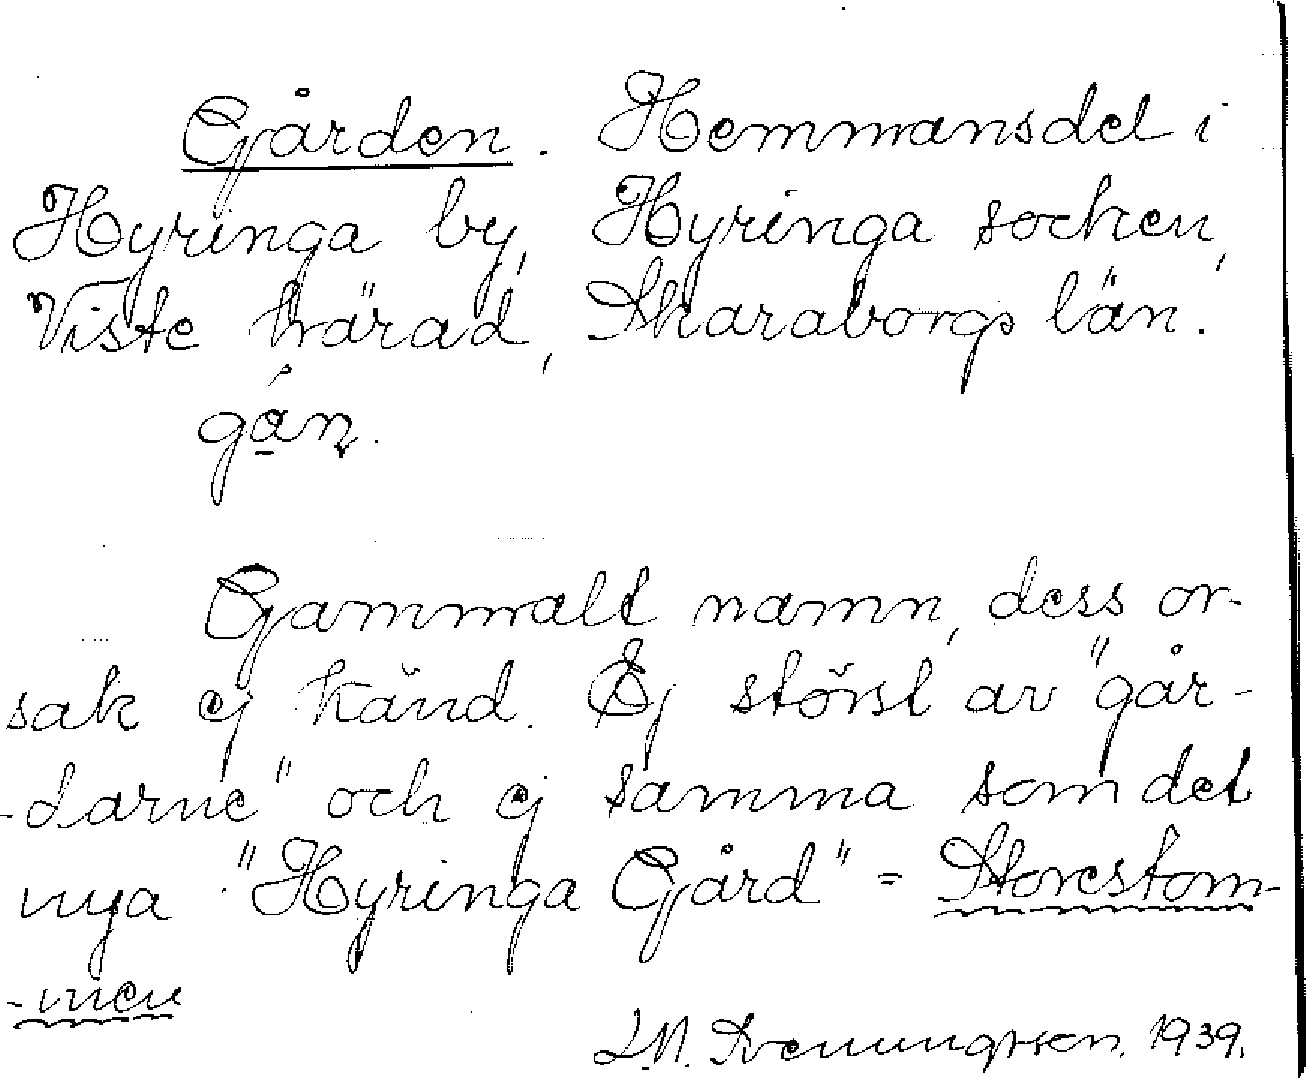 Gården. Hemmansdel i
Hyringa by, Hyringa socken,
Viste härad, Skaraborgs län.
gå̱n.
Gammalt namn, dess or-
sak ej känd. Ej störst av "går-
-darne" och ej samma som det
nya "Hyringa Gård" = Storestom-
-men
L.N. Svenungsson. 1939.